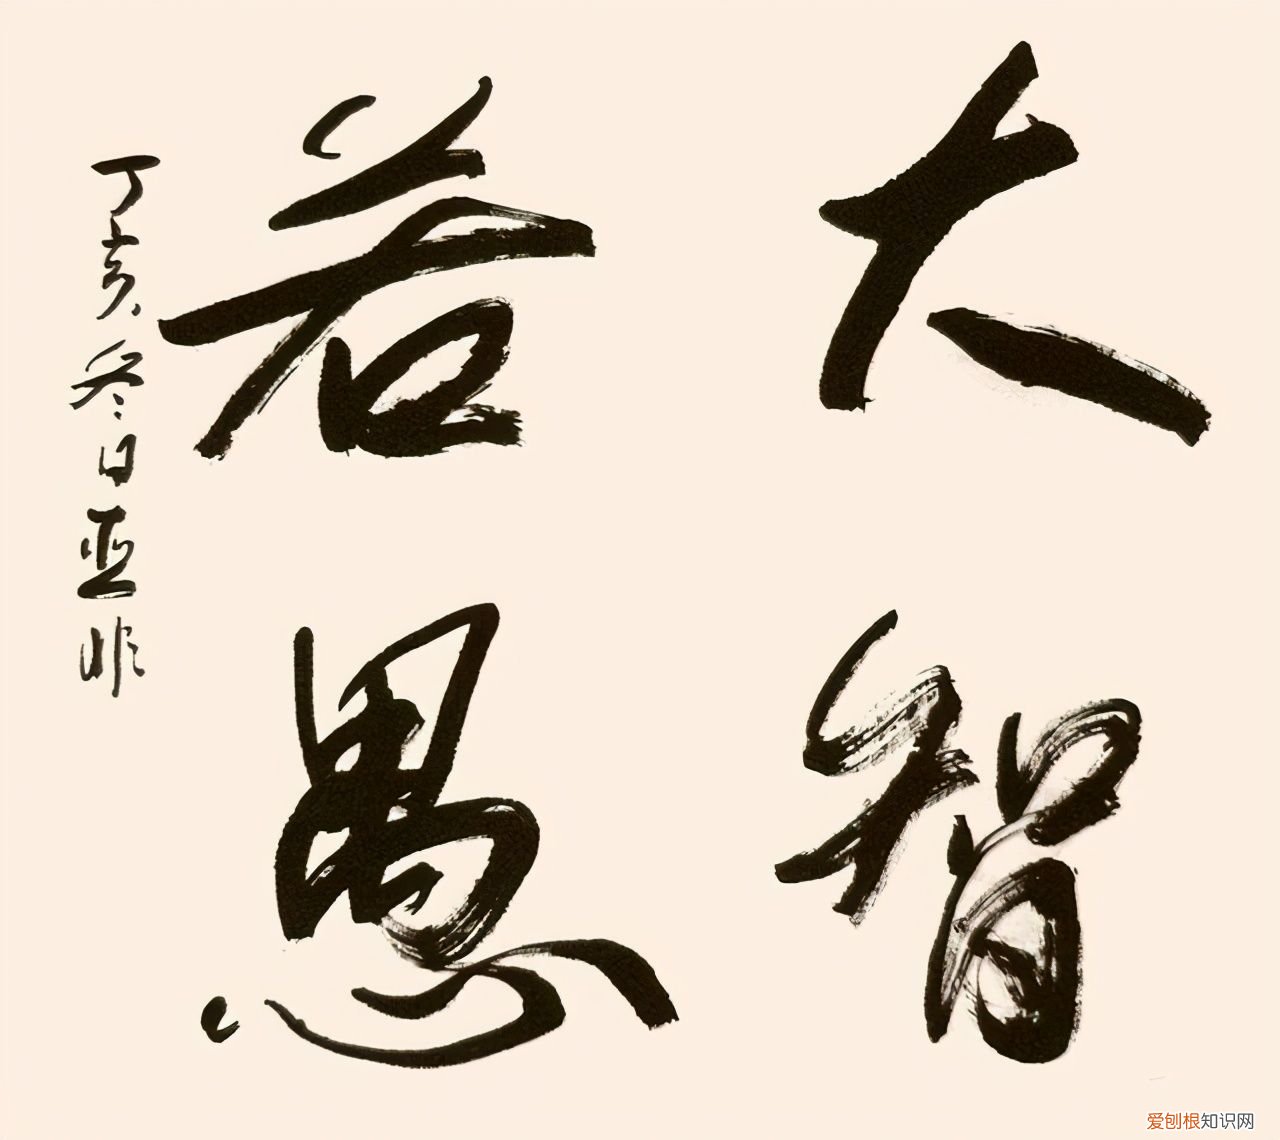 大智
若愚
丁亥冬日亚非
爱刨根知识网